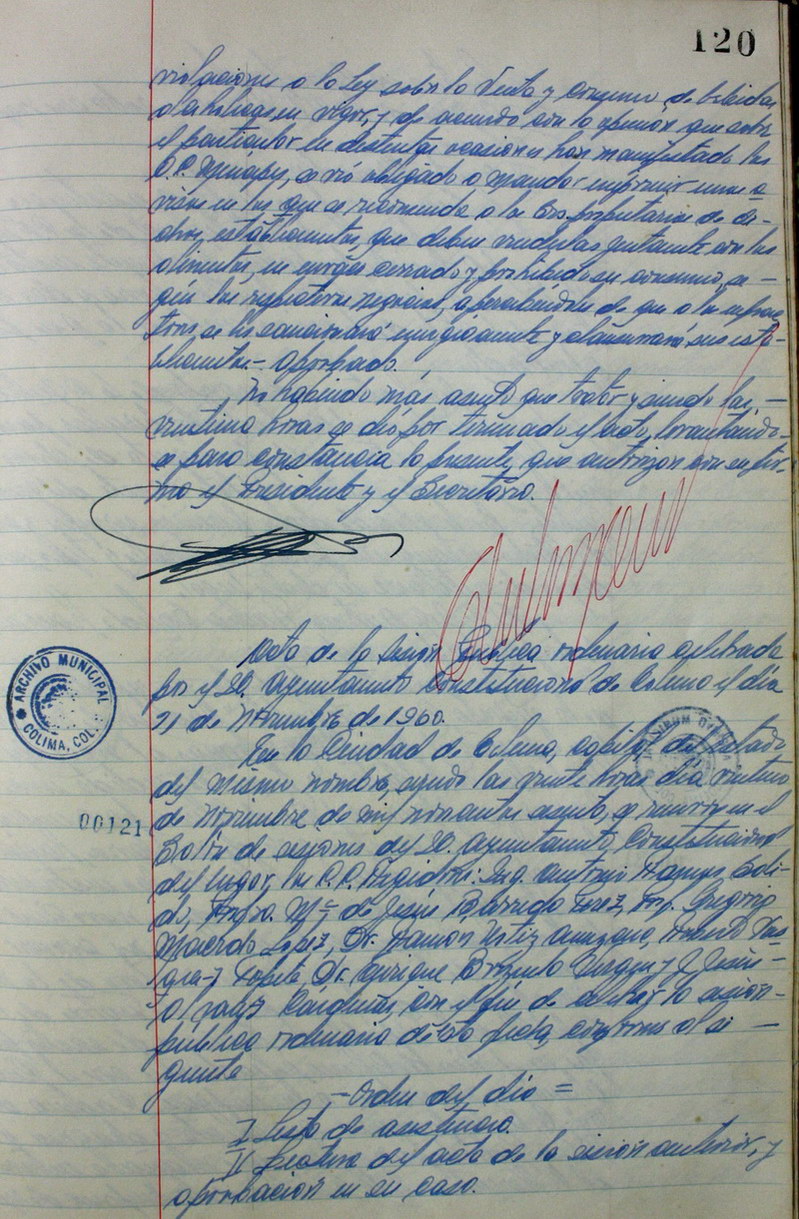 120
violaciones a la Ley sobre la Venta y Consumo de bebidas
alcohólicas en vigor, y de acuerdo con la opinión que sobre
el particular en distintas ocasiones han manifestado los
C.C. Munícipes, se vió obligado a mandar imprimir unos a
visos en los que se recomienda a los Cos. propietarios de di-
chos establecimientos, que deben venderlas juntamente con los
alimentos, en envase cerrado y prohibido su consumo, se-
gún los respectivos negocios, apercibiéndoles de que a los infrac
tores se les sancionará enérgicamente y clausurará sus esta-
blecimientos.- Aprobado.
No habiendo más asunto que tratar y siendo las
veintiuna horas se dió por terminado el acto, levantándo-
se para constancia la presente, que autorizan con su fir-
ma el Presidente y el Secretario.
Acta de la sesión pública ordinaria celebrada
por el H. Ayuntamiento Constitucional de Colima el día
21 de noviembre de 1960.
ARCHIVO MUNICIPAL
COLIMA, COL.
En la Ciudad de Colima, capital del Estado
del mismo nombre, siendo las veinte horas día veintiuno
00121
de noviembre de mil novecientos sesenta, se reunieron en el
Salón de sesiones del H. Ayuntamiento Constitucional
del lugar, los C.C. Regidores: Ing. Antonio
Profra. Ma. de Jesús Barreda Perez, Gregorio
Macedo López, Dr. Ramon Ortiz
Dr. Enrique Brizuela Virgen y J. Jesús
Cárdenas, con el fin de celebrar la sesión
pública ordinaria de esta fecha, conforme al si
guiente
- Orden del día =
I Lista de asistencia.
II Lectura del acta de la sesión anterior, y
aprobación en su caso.